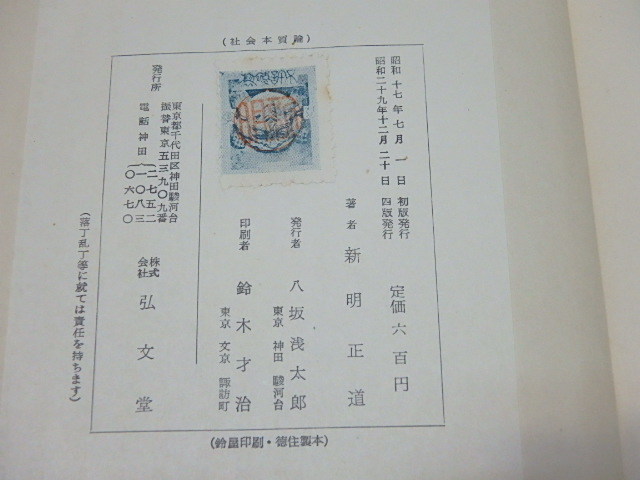 (社会本質論)
昭和十七年七月一日 初版発行
昭和二十九年十二月二十日 四版発行
定価六百円
著者 新明正道
発行者 八坂浅太郎
東京 神田 駿河台
印刷者 鈴木才治
東京 文京 諏訪町
発行所
東京都千代田区神田駿河台
振替東京五三九〇九番
電話神田(二七五二
一〇八三
〇六七〇
株式会社 弘文堂
(落丁乱丁等に就ては責任を持ちます)
(鈴屋印刷・徳住製本)